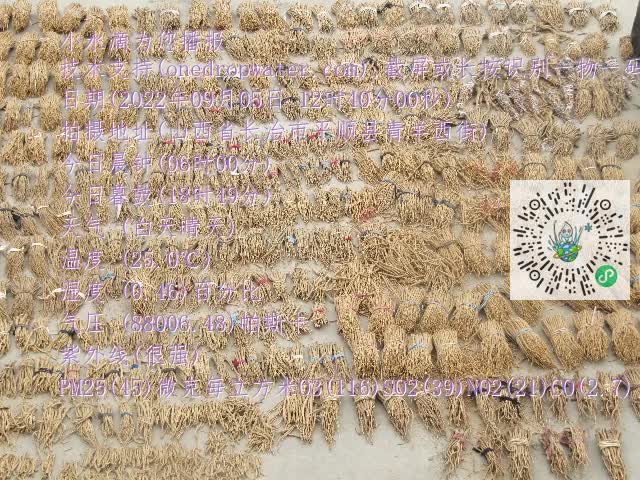 小水滴为您播报
技术支持(onedropwater.com)截屏或长按识别一物一码
日期(2022年09月05日 12时10分00秒)
拍摄地址(山西省长治市平顺县青羊西街)
今日晨钟(06时00分)
今日暮鼓(18时49分)
天气 (白天晴天)
温度 (25.0℃)
湿度 (0.46)百分比
气压 (88006.48)帕斯卡
紫外线(很强)
PM25(45)微克每立方米O3(116)SO2(39)NO2(21)CO(2.7)